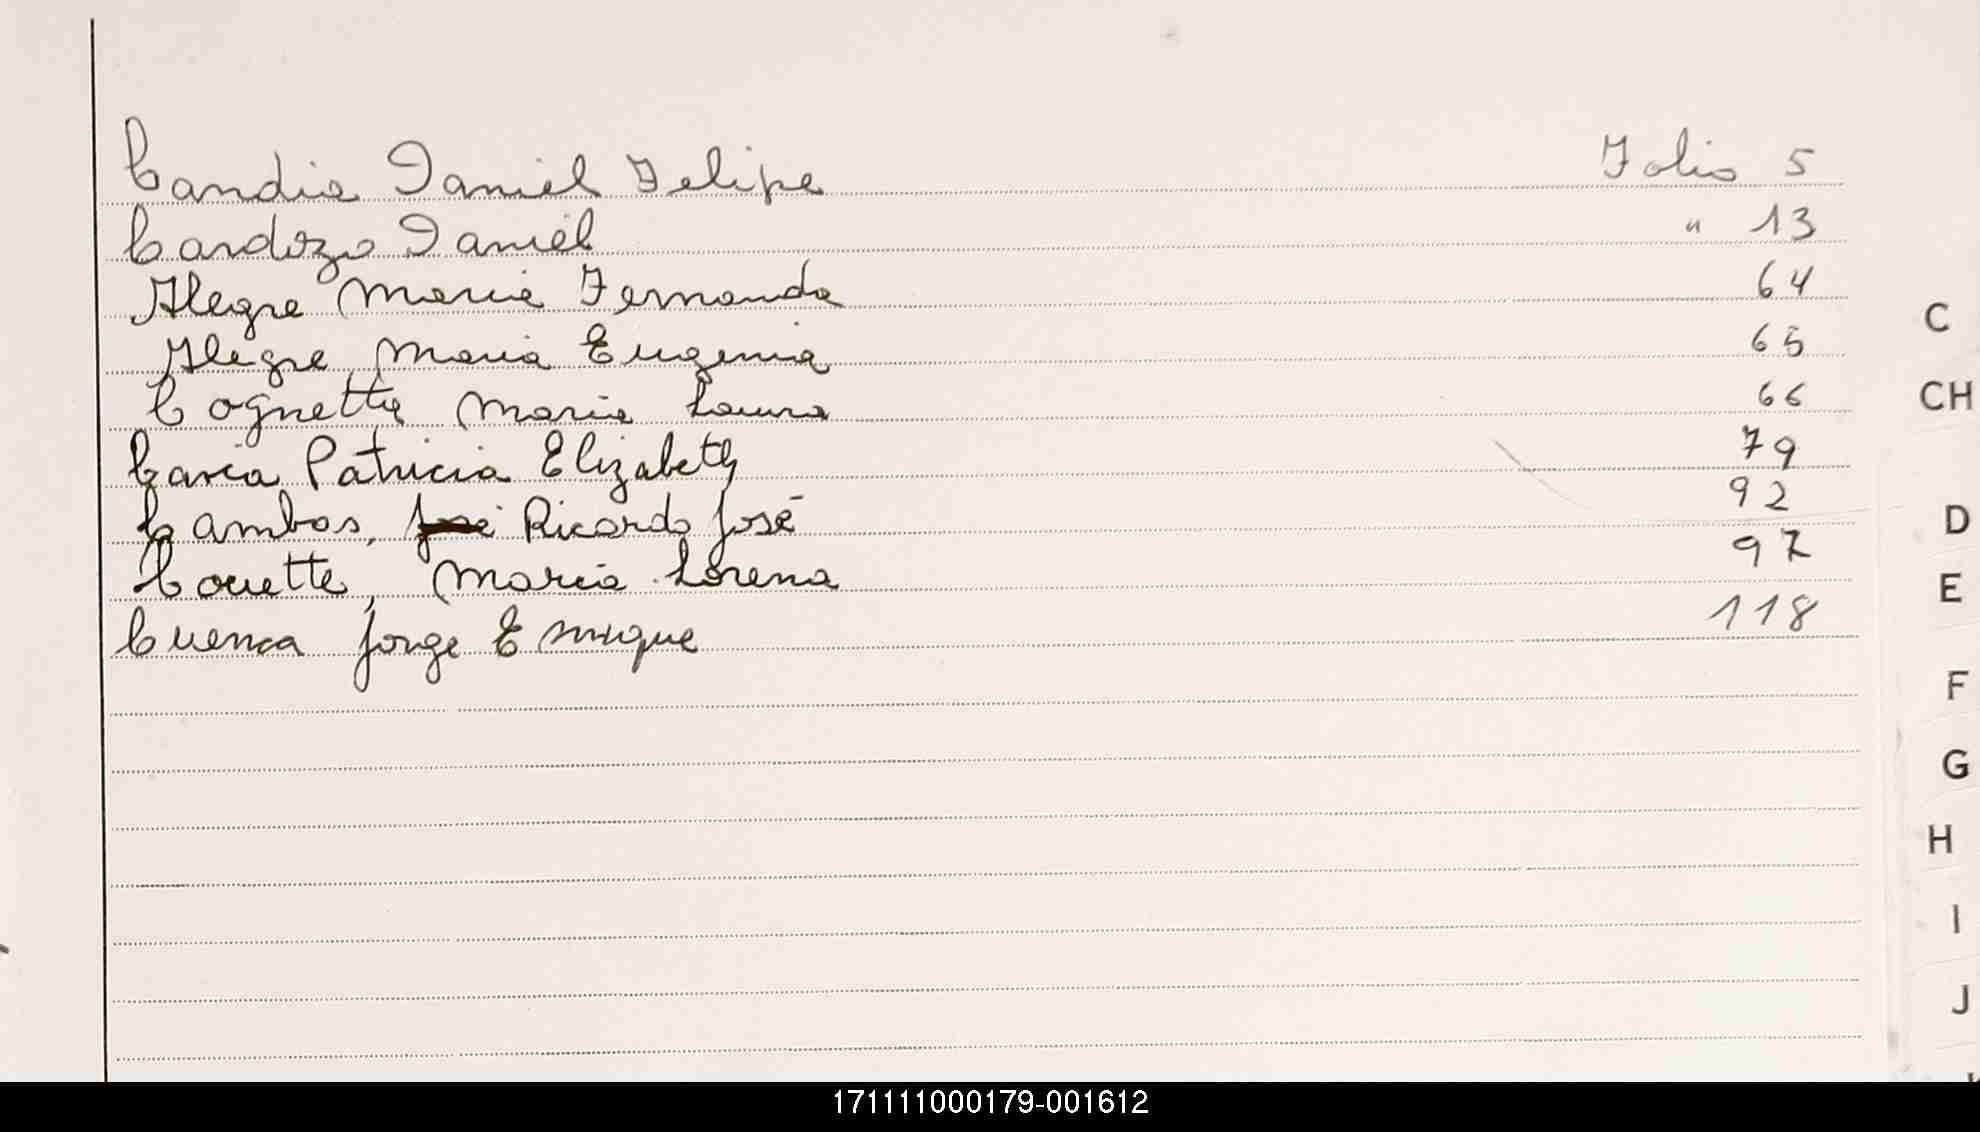 Candia Daniel Felipe Folio 5
Cardozo Daniel " 13
Alegre Maria Fernanda 64
Alegre Maria Eugenia 65
Cognetta Maria Laura 66
Caria Patricia Elizabeth 79
Cambas, José Ricardo José 92
Couette, Maria Lorena 97
Cuenca Jorge Enrique 118
C
CH
D
E
F
G
H
I
J
171111000179-001612